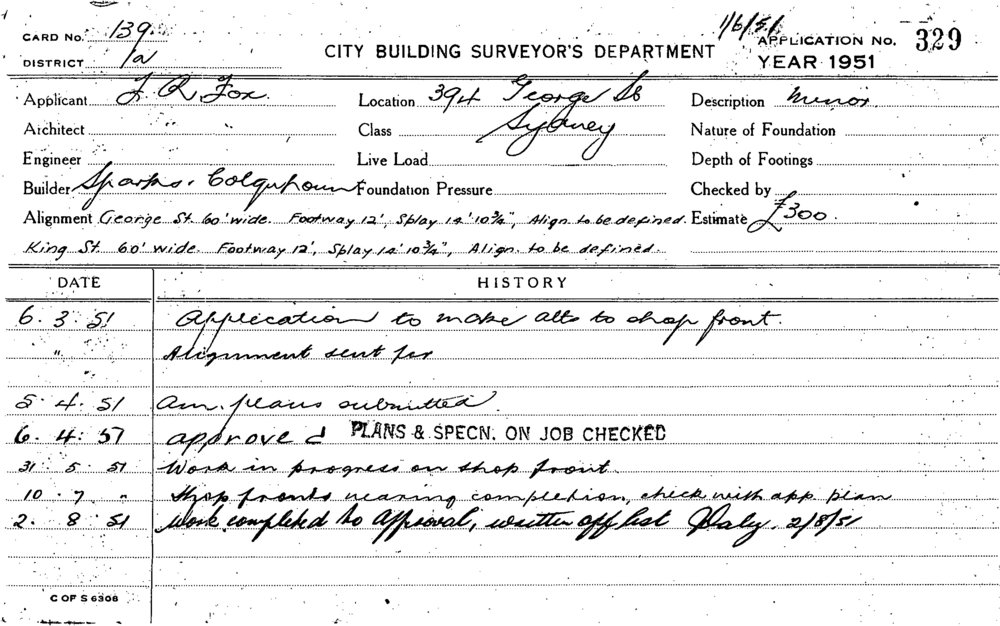 CARD No. 139. CITY BUILDING SURVEYOR'S DEPARTMENT 1/6/51 APPLICATION No. 329
DISTRICT 1a YEAR 1951
Applicant J. R. Fox. Location 394 George St Description Minor
Architect Class Sydney Nature of Foundation
Engineer Live Load Depth of Footings
Builder Sparks. Colquhoun Foundation Pressure Checked by
Alignment George St. 60' wide. Footway 12', Splay 14' 10¾", Align. to be defined. Estimate £300.
King St. 60' wide. Footway 12', Splay 14' 10¾", Align. to be defined.
DATE HISTORY
6. 3. 51 Application to make alts to shop front.
" Alignment sent for
5. 4. 51 Am. plans submitted.
6. 4. 51 approved PLANS & SPECN. ON JOB CHECKED
31 5. 51 Work in progress on shop front.
10. 7 " Shop fronts nearing completion, check with app. plan
2. 8. 51 Work completed to approval, written off list Daly. 2/8/51
C OF S 6308